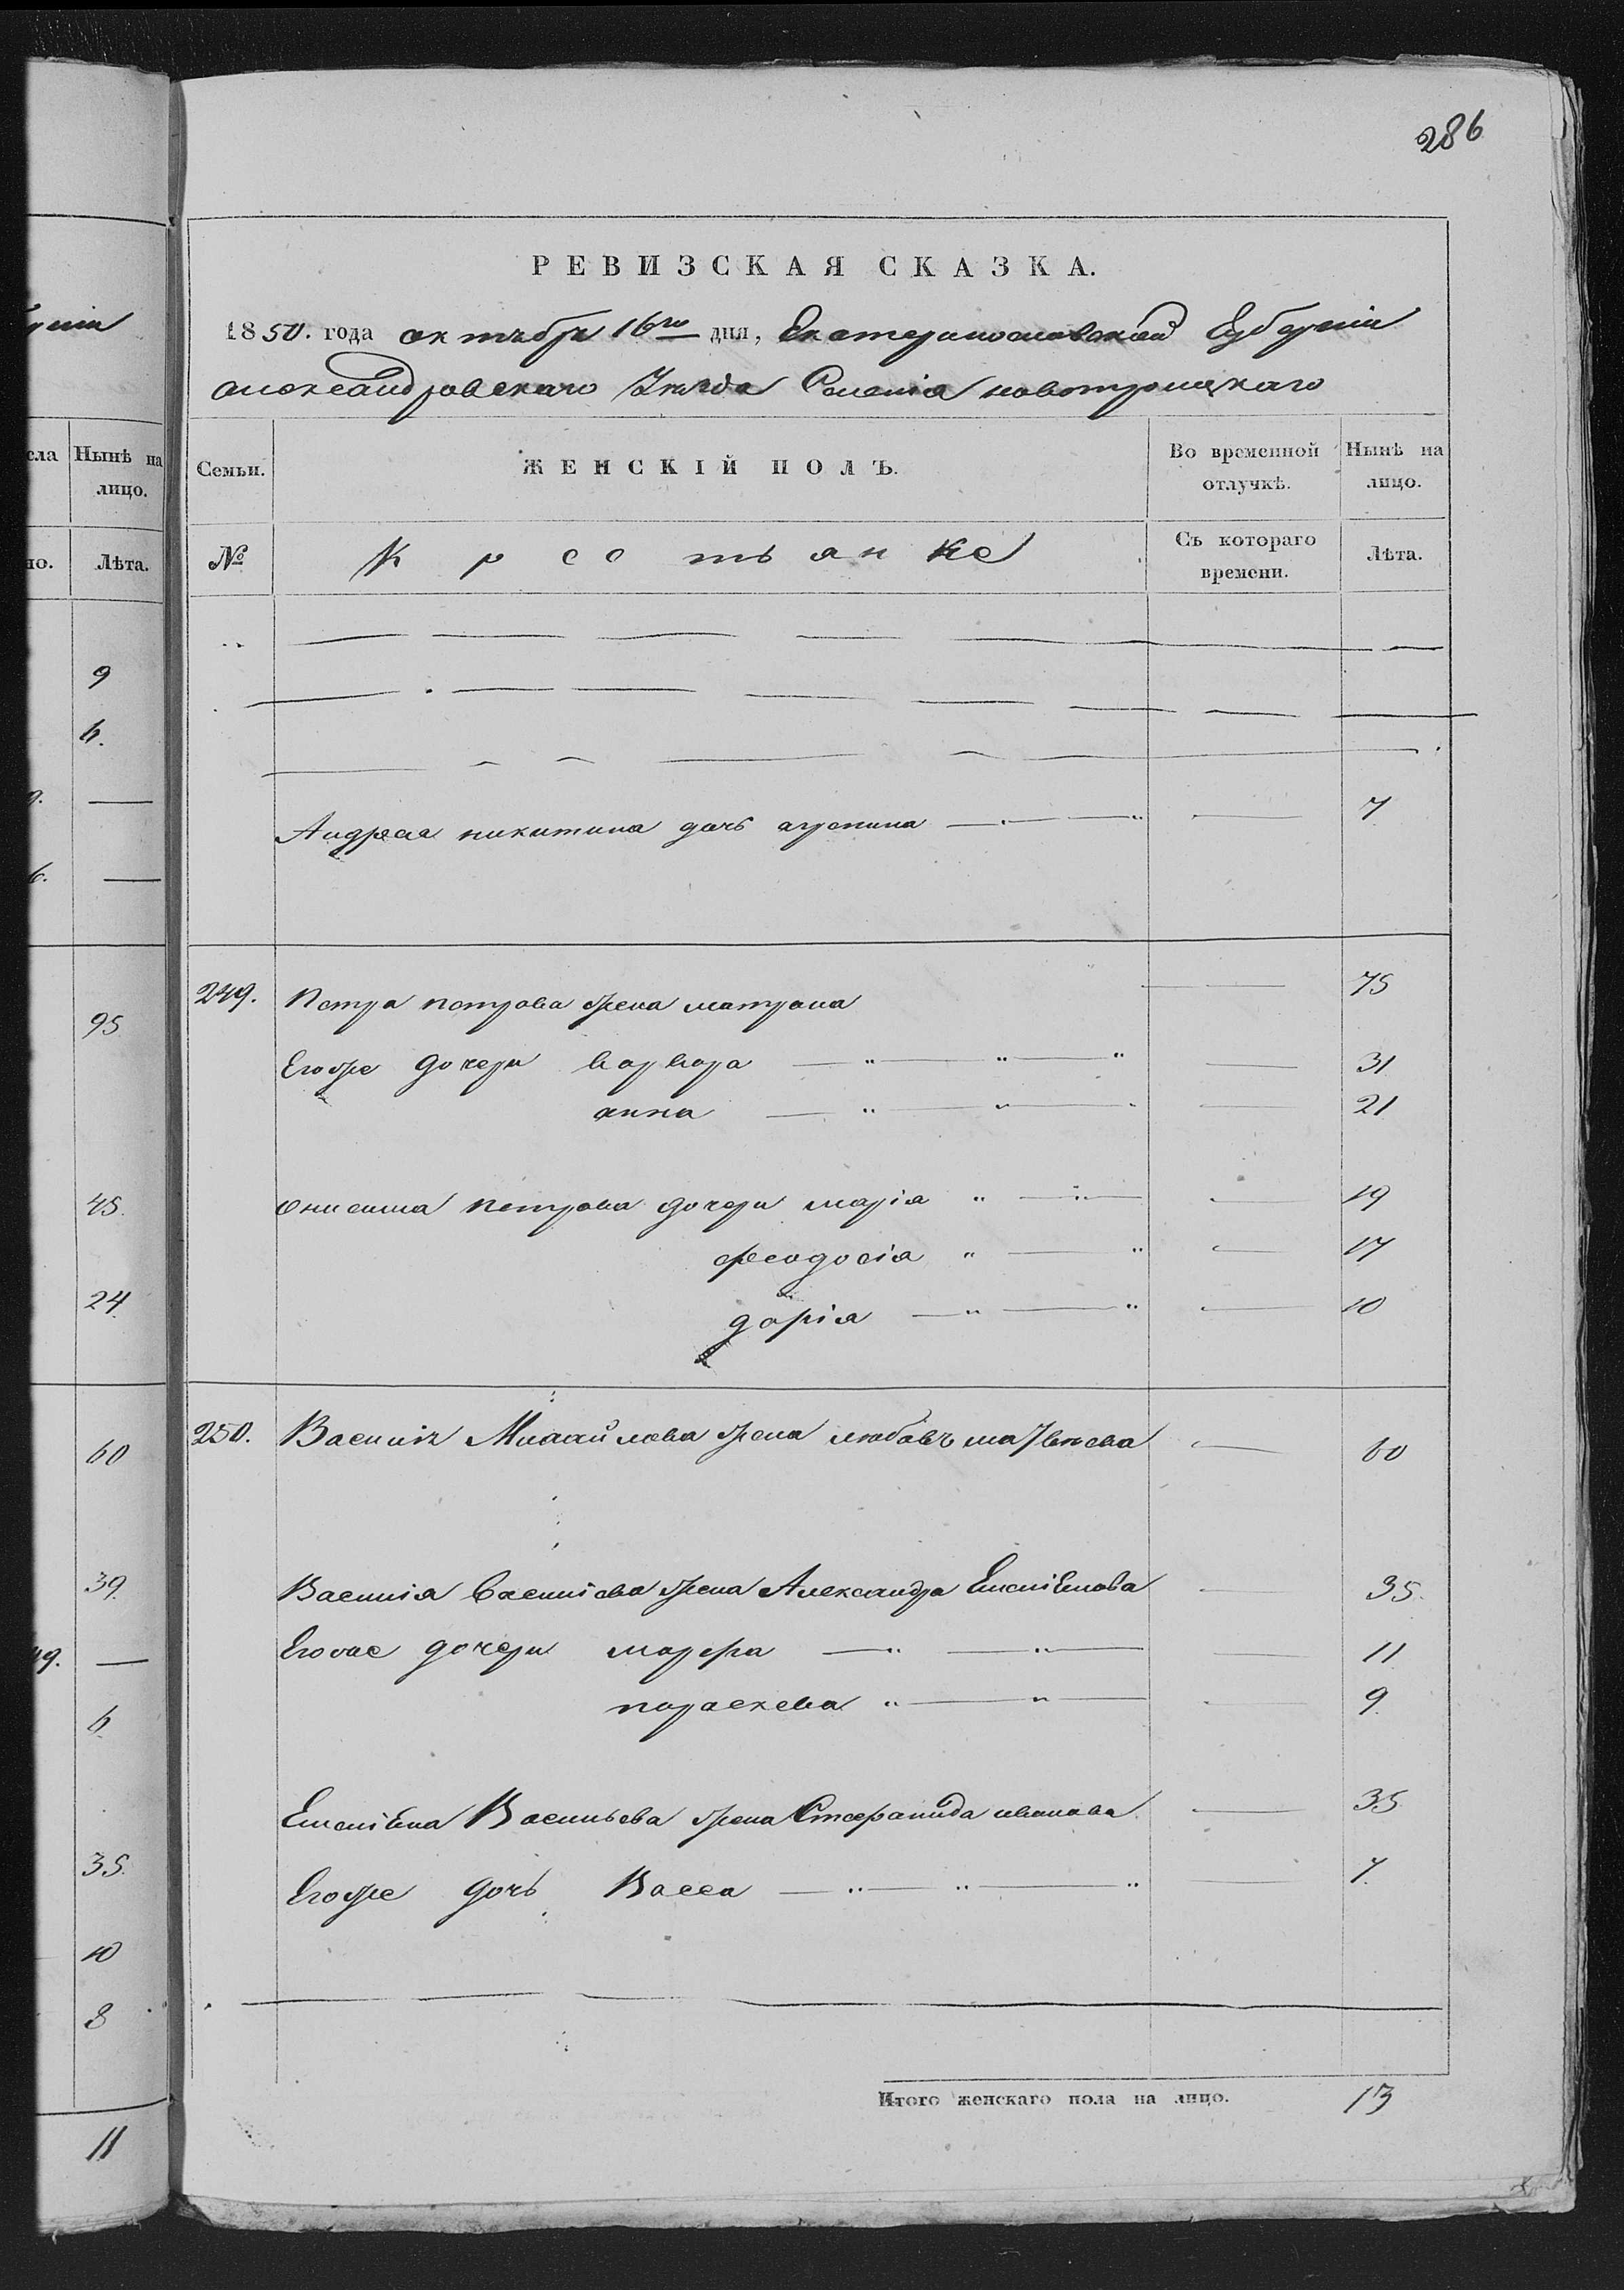 286
РЕВИЗСКАЯ СКАЗКА.
1850. года октября 16го дня, Екатеринославской Губернiи
Александровскаго Уезда Селенiя новотроицкаго
Семьи.
ЖЕНСКІЙ ПОЛЪ.
Во временной отлучкѣ.
Нынѣ на лицо.
№
Крестьянке
Съ котораго времени.
Лѣта.
Андрея никитина дочь агрепина — 7
249. Петра петрова жена матрона — 75
Егоже дочери варвара — 31
анна — 21
Онисима петрова дочери марiя — 19
феодосiя — 17
дарiя — 10
250. Василiя Михайлова жена любовъ матвеева — 60
Василiя Василiева жена Александра Емелiянова — 35.
Егоже дочери марфа — 11
параскева — 9.
Емелiяна Васильева жена Степанида иванова — 35
Егоже дочь Васса — 7.
Итого женскаго пола на лицо. 13
унiи
сла
Нынѣ на лицо.
но.
Лѣта.
9
6.
95
45.
24
60
39.
49.
6
35.
10
8
11